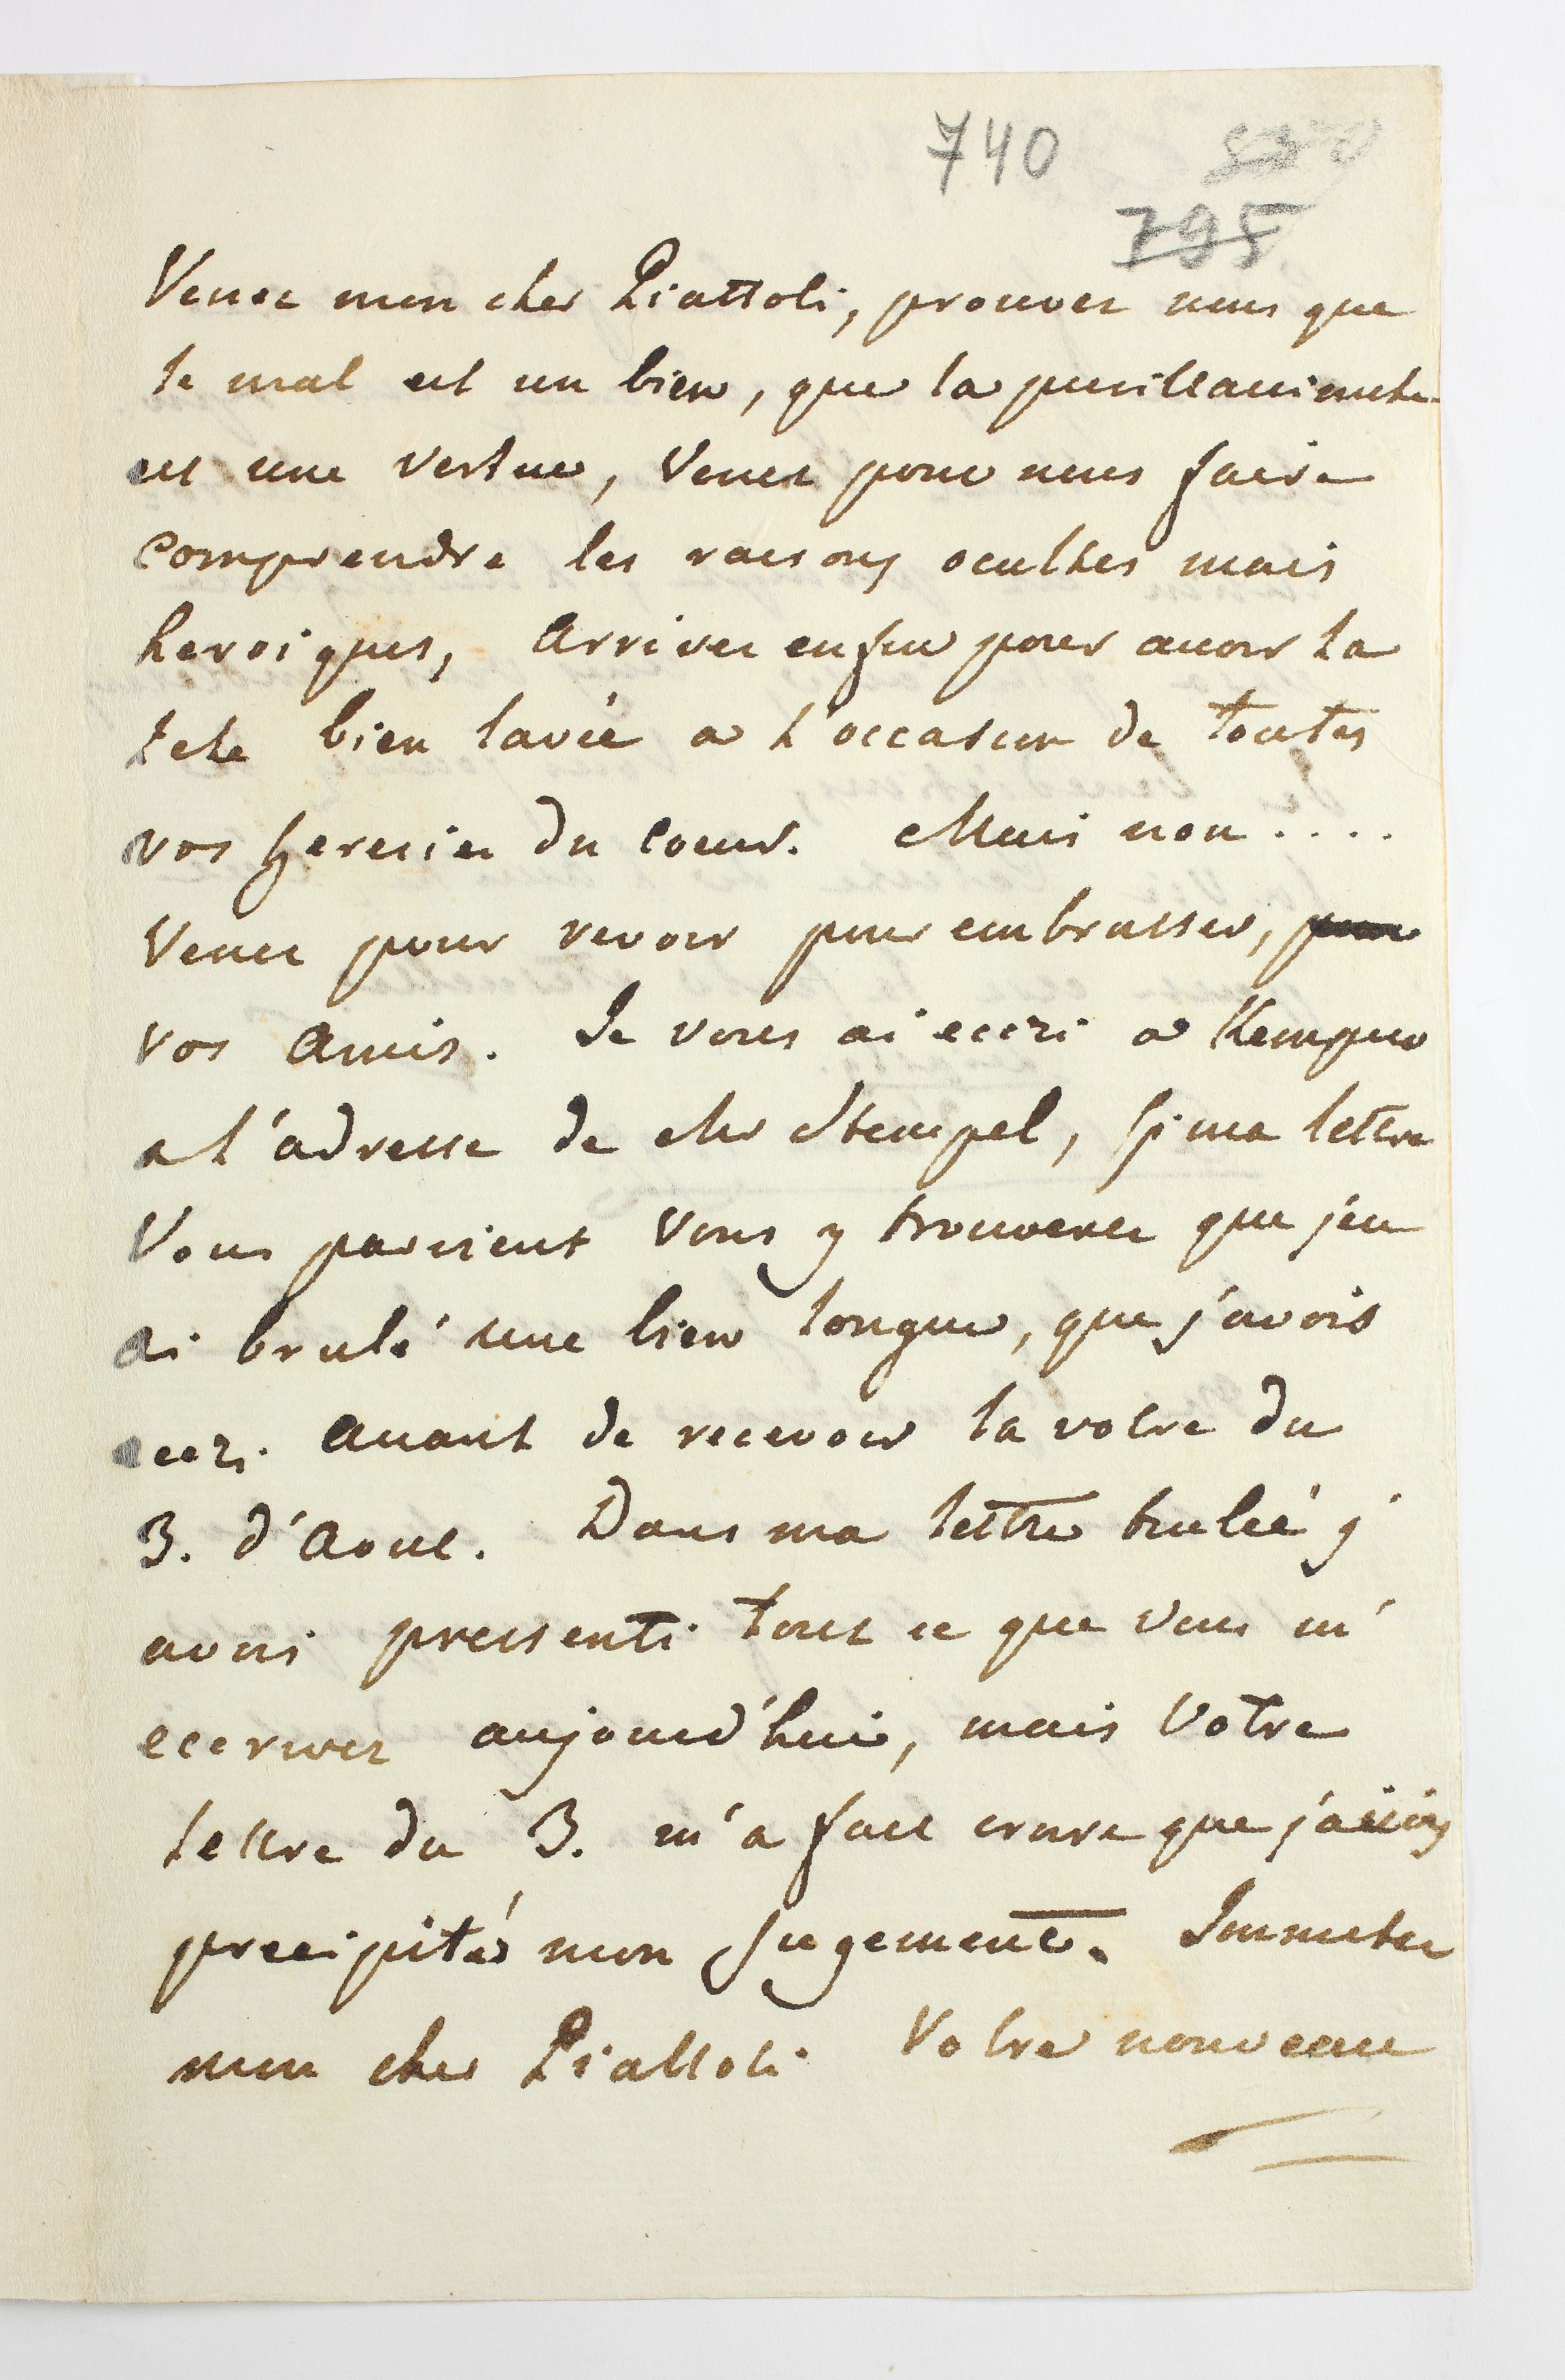 740
795
Venez mon cher Piattoli, prouvez nous que
le mal est un bien, que la pusillanimite
est une vertue, Venez pour nous faire
comprendre les raisons ocultes mais
heroiques, Arrivez enfin pour avoir la
tete bien lavée a l'occasion de toutes
vos heresies du Coeur. Mais non....
Venez pour revoir pour embrasser, pour
vos Amis. Je vous ai ecczi a
a l'adresse de Mr Stempel, si ma lettre
Vous parvient Vous y trouverez que j'en
ai brulé une bien longue, que j'avois
eczi Avant de recevoir la votre du
3. d'Aout. Dans ma lettre brulée j'
avois pressenti tout ce que vous m'
ecerivez aujourd'hui, mais Votre
lettre du 3. m'a fait croire que j'avois
precipité mon Jugement. Immitez
mon cher Piattoli Votre nouveau